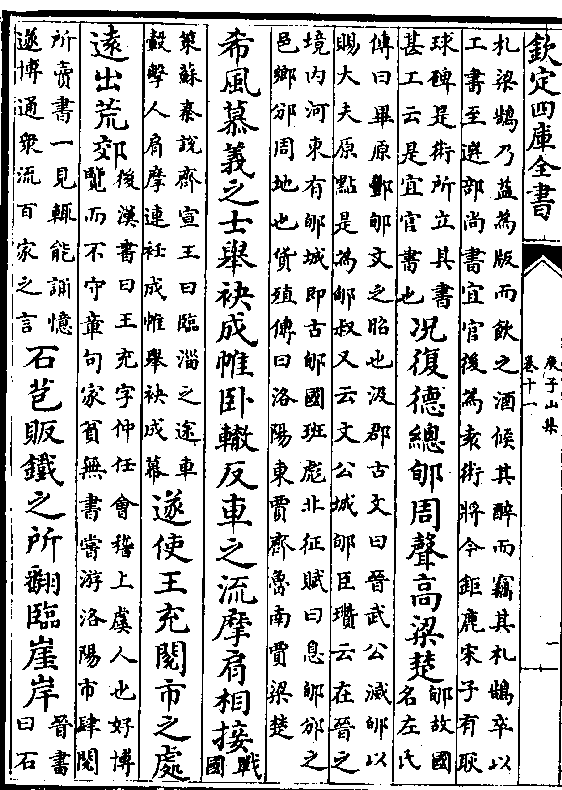 欽定四庫全書
庾子山集
卷十一
一
札梁鵠乃益為版而飲之酒候其醉而竊其札鵠卒以
工書至選部尚書宜官後為袁術將今鉅鹿宋子有耿
球碑是術所立其書
甚工云是宜官書也
况復德總郇周聲高梁楚
郇故國
名左氏
傳曰畢原酆郇文之昭也汲郡古文曰晉武公滅郇以
賜大夫原點是為郇叔又云文公城郇臣瓚云在晉之
境内河東有郇城即古郇國班彪北征賦曰息郇邠之
邑鄉邠周地也貨殖傳曰洛陽東賈齊魯南賈梁楚
希風慕義之士舉袂成帷卧轍反車之流摩肩相接
戰
國
策蘇秦說齊宣王曰臨淄之途車
轂擊人肩摩連衽成帷舉袂成幕
遂使王充閱市之處
遠出荒郊
後漢書曰王充字仲任會稽上虞人也好博
覽而不守章句家貧無書嘗游洛陽市肆閱
所賣書一見輒能誦憶
遂博通衆流百家之言
石苞販鐵之所翻臨崖岸
晉書
曰石